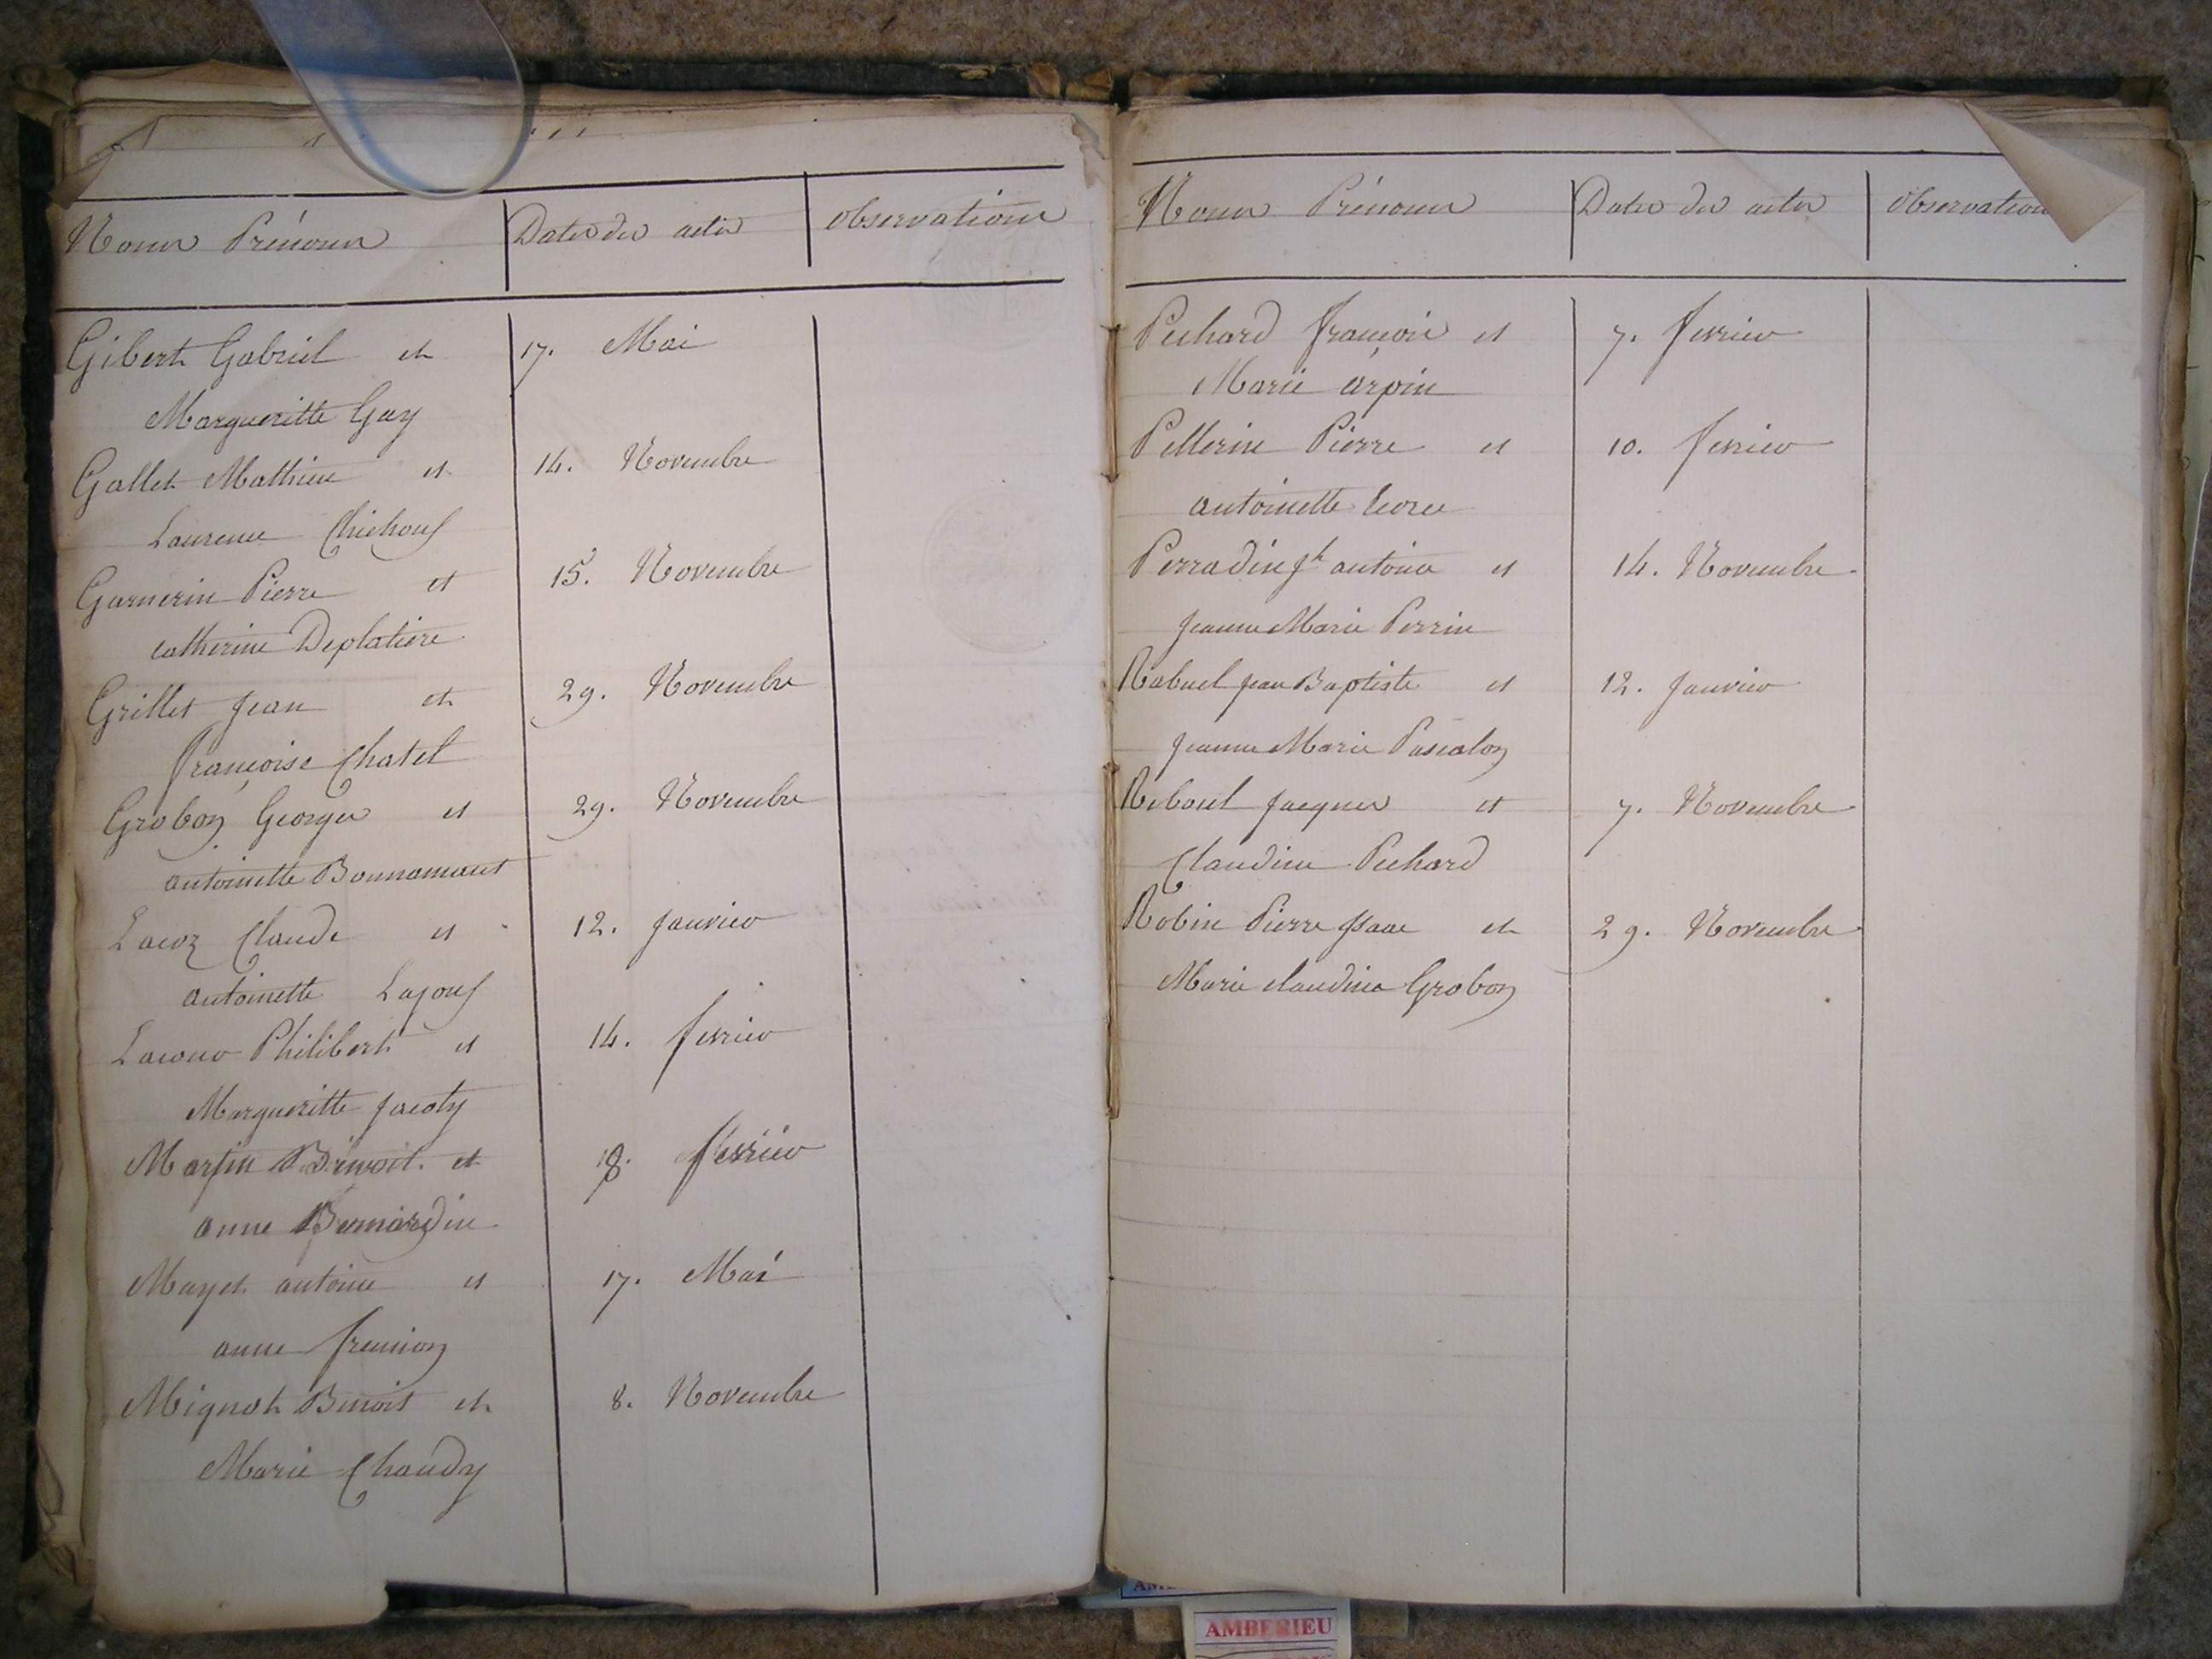 Noms Prénoms Dates des actes Observations
Gibert Gabriel et 17. Mai
Margueritte Guy
Gallet Mathieu et 14. Novembre
Laurence Chichoux
Garnerin Pierre et 15. Novembre
Catherine Deplatière
Grillet Jean et 29. Novembre
françoise Chatel
Grobon Georges et 29. Novembre
antoinette Bonnamant
Lacoz Claude et 12. janvier
antoinette Lajoux
Philibert et 14. fevrier
Margueritte jacoty
Martin Bénoit et 18. février
anne Bernardin
Mayet antoine et 17. Mai
anne fremion
Mignot Benoit et 8. Novembre
Marie Chaudy
Noms Prénoms Dates des actes Observation
Pechard françois et 7. fevrier
Marie arpin
Pellerin Pierre et 10. fevrier
antoinette
Perradin fs antoine et 14. Novembre
jeanne Marie Perrin
Rabuel jean Baptiste et 12. janvier
jeanne Marie Pascalon
Reboul jacques et 7. Novembre
Claudine Pechard
Robin Pierre jsaac et 29. Novembre
Marie claudine Grobon
AMBERIEU